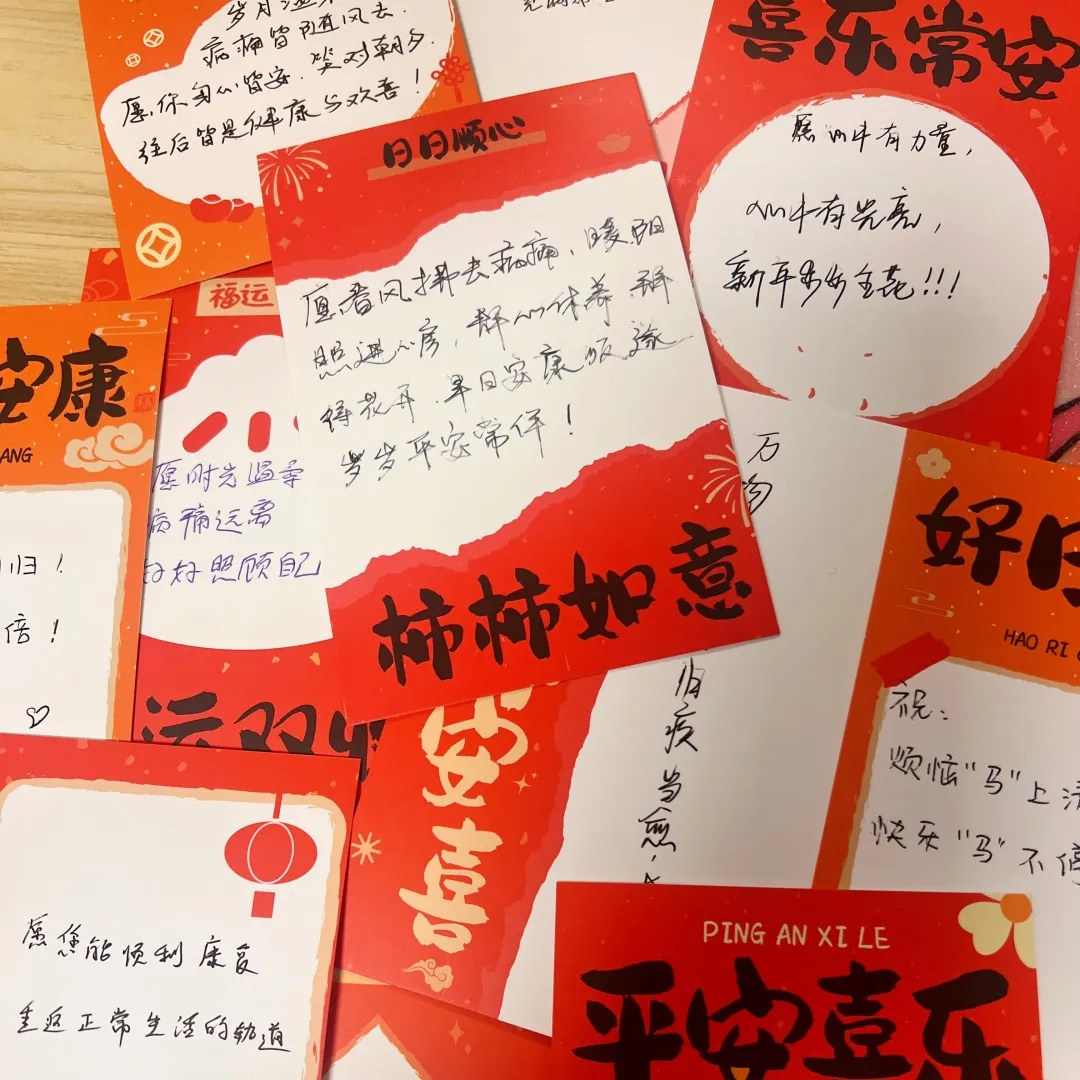 病痛皆随风去.
愿你身心皆安.笑对朝夕
往后皆是健康与欢喜！
喜乐常安
愿心中有力量,
心中有光亮,
新年步步生花!!!
日日顺心
愿春风拂去病痛、暖阳
照进心房，静心休养
得花开.早日安康
岁岁平安常伴！
柿柿如意
福运
愿时光温柔
病痛远离
好好照顾自己
运双
安康
ANG
归！
倍！
万
物
归
疾
当
愈
安
喜
好
HAO RI
祝:
烦恼"马"上
快乐"马"不停
愿您能顺利康复
重返正常生活的轨道
PING AN XI LE
平安喜乐